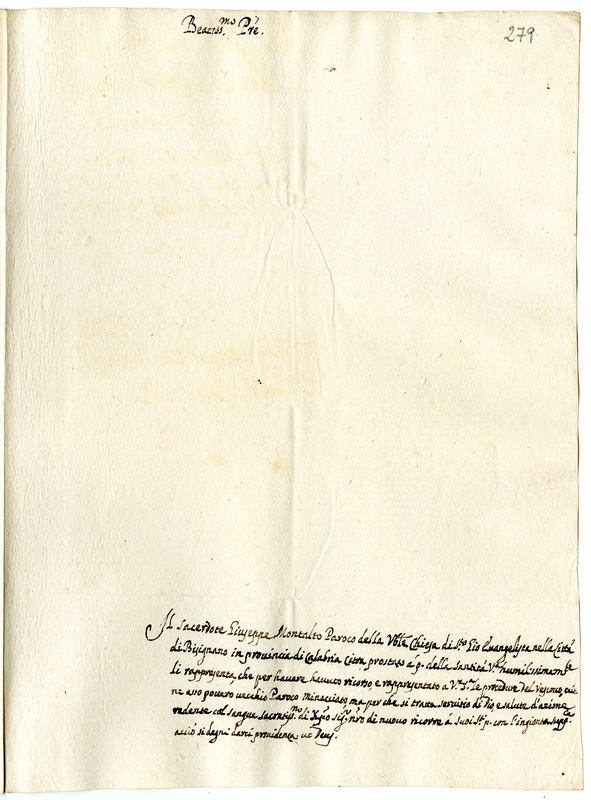 Beatiss.mo Pre.
279
Il sacerdote Giuseppe Montalto Paroco della Chiesa di S.to Gio Evangelista nella Città
di Bisignano in provincia di Calabria Citra prostato a p. della Santità V.ra humilissimam.te
li rappresenta, che per havere havuto ricorso, e rappresentato a V. S.tà le procedure del vescovo, vie
ne esso povero vecchio Paroco minacciato, ma per che si tratta servitio di Dio, e salute d'anime
redente col sangue di Xp̄o sig. nr̄o di nuovo ricorre à suoi S.ti p. con l'ingionta
acciò si degni darci providenza ut Deus.